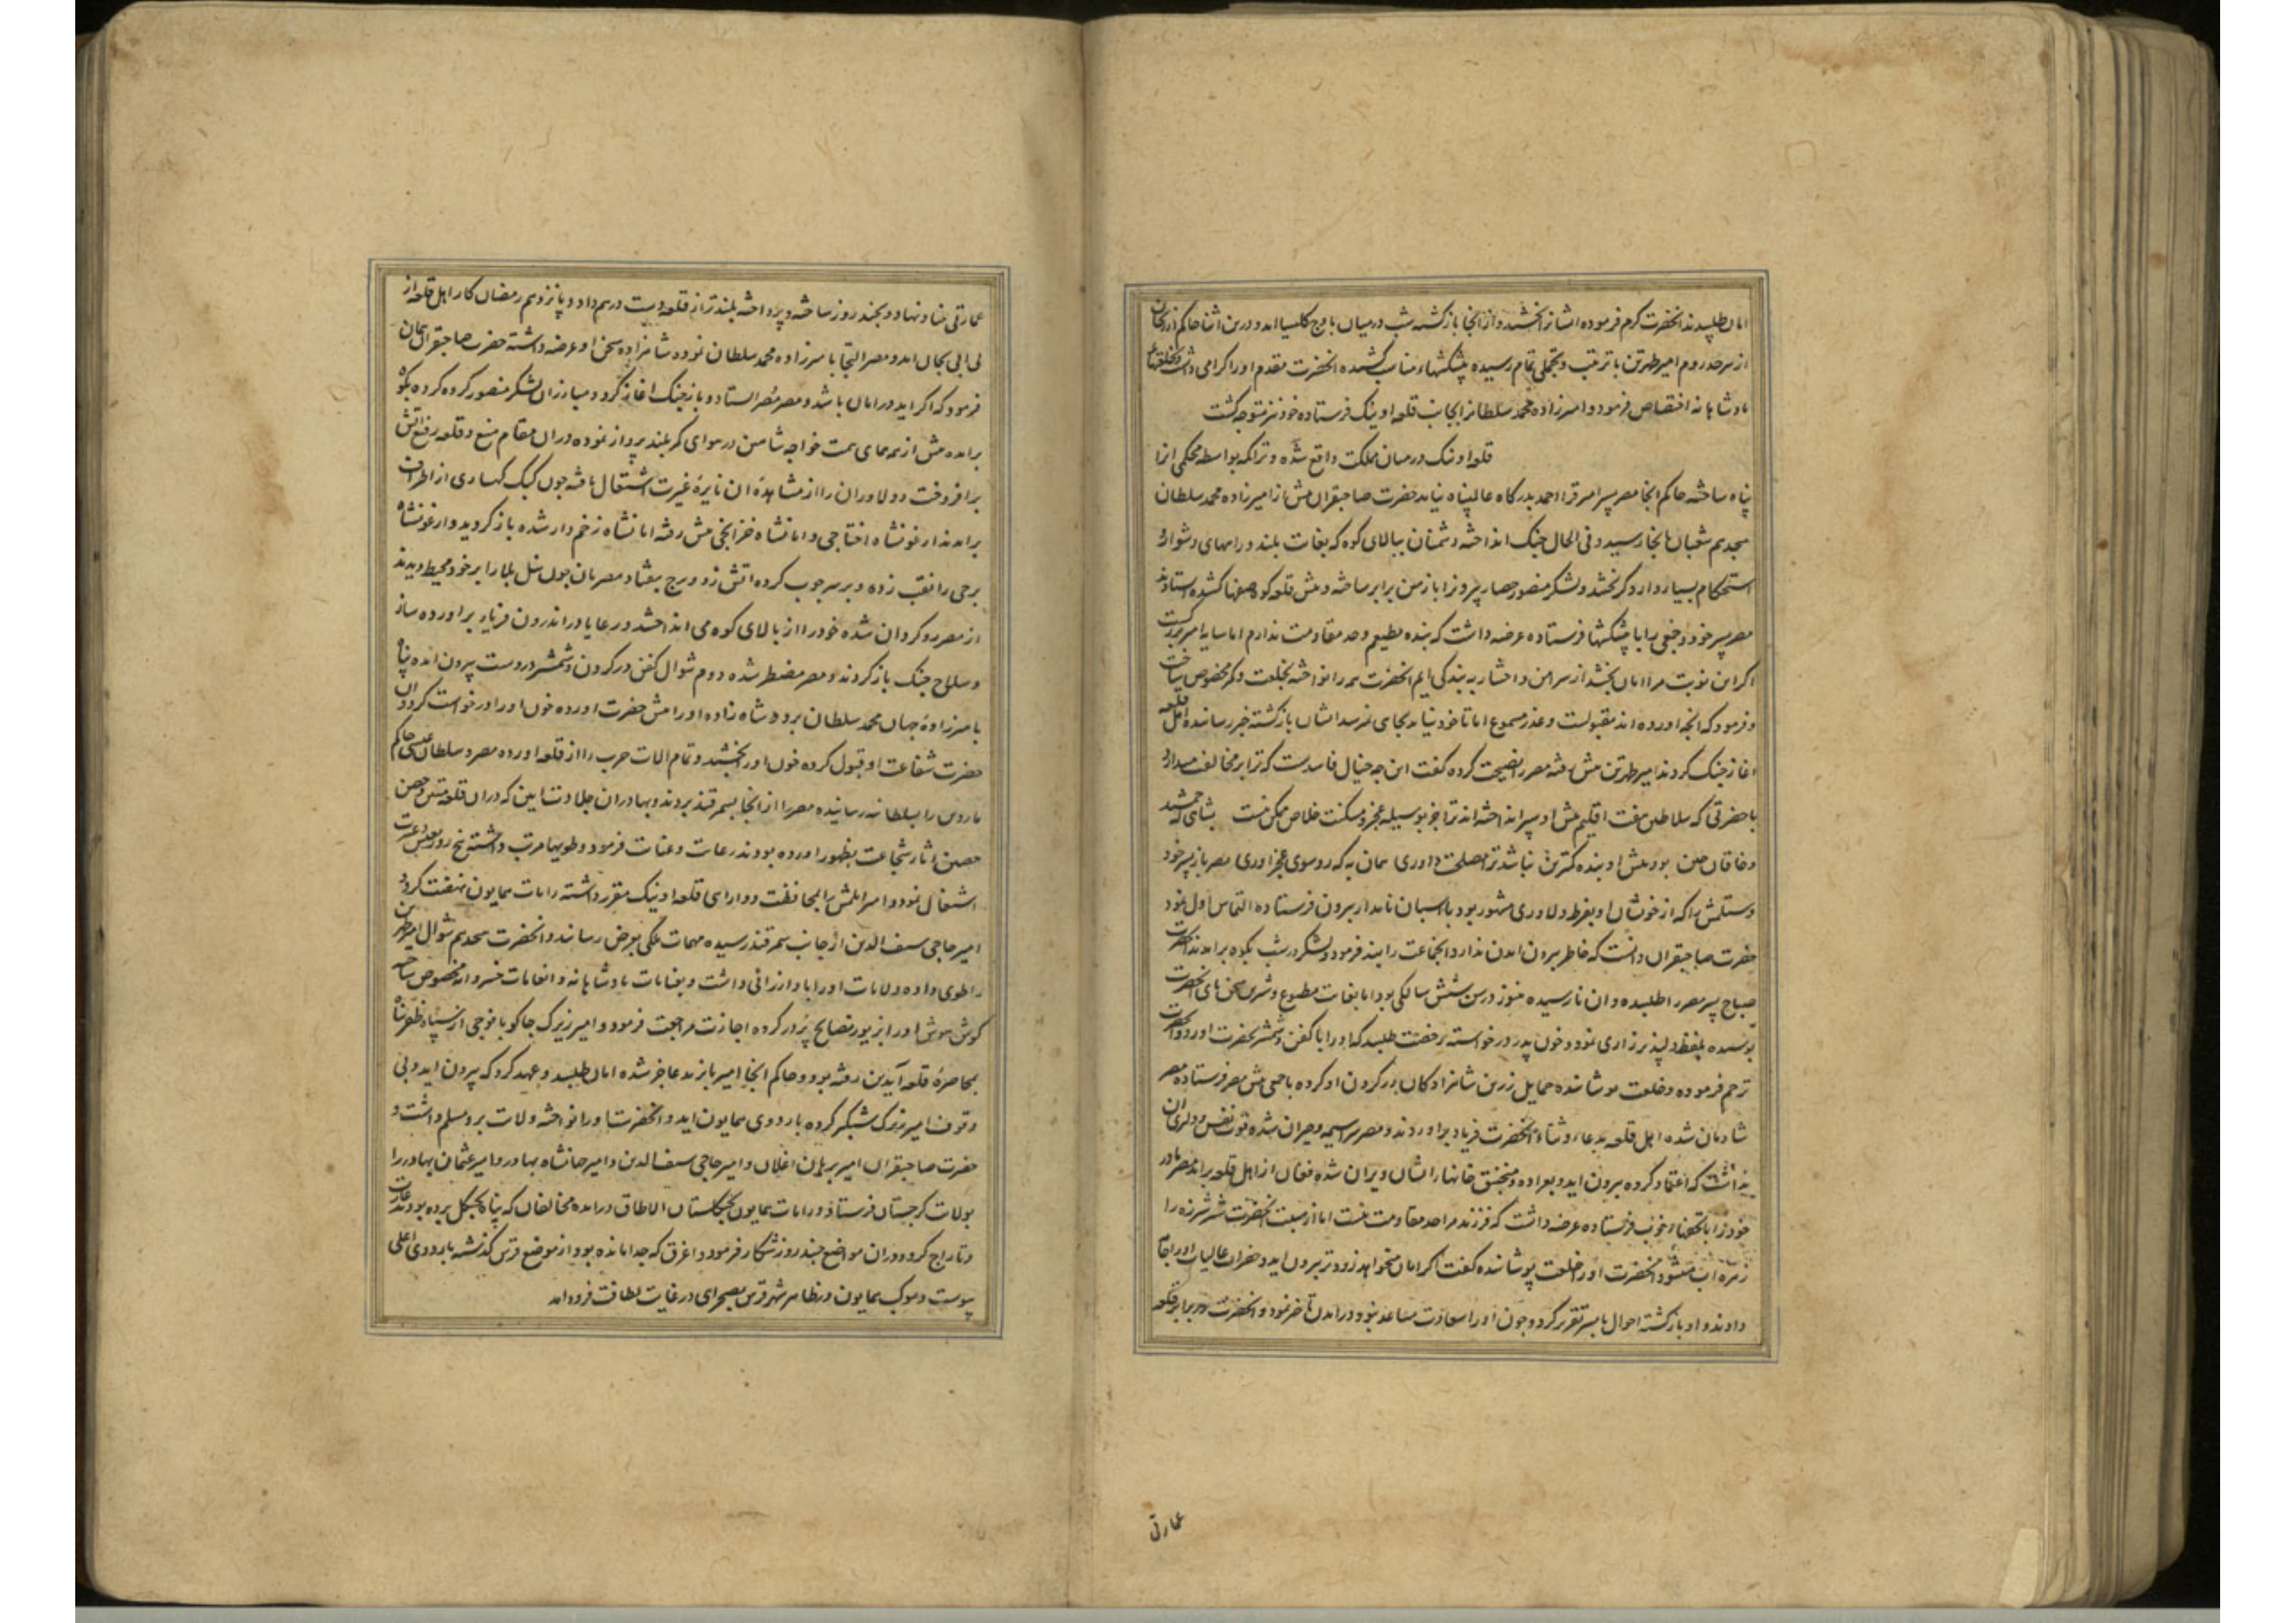 امان طلبیدند انحضرت کرم فرموده ایشانرا بخشید و از انجا بازکشته شب درمیان باوج کلیسیا امد و درین اثنا حاکم ازرنجان
از سرحد روم امیر طهرتن با ترتیب و تجملی تمام رسیده پیشکشهاء مناسب کشید انحضرت مقدم او را کرامی داشت و بخلعتهاء
بادشاهانه اختصاص فرمود و امیرزاده محمد سلطانرا بجانب قلعه اونیک فرستاده خود نیز متوجه کشت
قلعه اونیک درمیان مملکت واقع شده و تراکمه بواسطه محکمی انرا
پناه ساخته حاکم انجا مصر پسر امیر قرا احمد بدرکاه عالم پناه نیامد حضرت صاحبقران پیش از امیرزاده محمد سلطان
هجدهم شعبان بانجا رسید و فی الحال جنک انداخته دشمنان ببالای کوه که بغایت بلند و راههای دشوار و
استحکام بسیار دارد کریختند و لشکر منصور حصار پیرونرا با زمین برابر ساخته و پیش قلعه کوه صفها کشیده ایستادند
مصر پسر خود و جمعی را با پیشکشها فرستاده عرضه داشت که بنده مطیعم و حد مقاومت ندارم اما سیاست امیر بزرکست
اکر این نوبت مرا امان بخشد از سر امن و اختیار به بندکی ایم انحضرت همه را نواخته بخلعت و کمر مخصوص ساخت
و فرمود که انچه اورده اند مقبولست و عذر مسموع اما تا خود نیاید بجای نرسد ایشان بازکشته خبر رسانده اهل قلعه
اغاز جنک کردند امیر طهرتن پیش رفته مصر را نصیحت کرده کفت این چه خیال فاسدست که ترا بر مخالفت میدارد
با حضرتی که سلاطین هفت اقلیم پیش او سپر انداخته اند ترا جز بوسیله عجز و مسکنت خلاص ممکن نیست بشاهی که جمشید
و خاقان چین بود پیش او بنده کمترین نباشد ترا مصلحت داوری همان به که رو سوی عجز اوری مصر باز پسر خود
و ستلمش را که از خویشان او بفرط دلاوری مشهور بود با اسبان نامدار بیرون فرستاده التماس اول نمود
حضرت صاحبقران دانست که خاطر بیرون امدن ندارد انجماعت را بند فرمود و لشکر در شب بکوه برامدند انحضرت
صباح پسر مصر را طلبیده و ان نارسیده هنوز در سن شش سالکی بود اما بغایت مطبوع و شیرین سخن پای انحضرت
بوسیده بلفظ دلپذیر زاری نمود و خون پدر درخواسته رخصت طلبید که او را با کفن و شمشیر بحضرت اورد و انحضرت
ترحم فرموده و خلعت پوشانده حمایل زرین شاهزادکان در کردن او کرده با جمعی پیش مصر فرستاده مصر
شادمان شده اهل قلعه بدعا و ثناء انحضرت فریاد براوردند و مصر سراسیمه و حیران شده قوت نفس و دلیری ان
نداشت که اعتماد کرده بیرون اید و بعراده و منجنیق خانهاء ایشان ویران شده فغان از اهل قلعه برامد مصر مادر
خود را با تحفهاء خوب فرستاده عرضه داشت که فرزند مرا حد مقاومت نیست اما از هیبت انحضرت شیر شرزه را
زهره اب میشود انحضرت او را خلعت پوشانده کفت اکر امان میخواهد زودتر بیرون اید و حضرات عالیات او را جامه
دادند و او بازکشته احوال با پسر تقریر کرد و چون او را سعادت مساعد نبود در امدن تاخیر نمود و انحضرت در برابر قلعه
عمارتی
عمارتی بنیاد نهاد و بچند روز ساخته و پرداخته بلندتر از قلعه دست درهم داد و پانزدهم رمضان کار اهل قلعه از
بی ابی بجان امد و مصر التجا با میرزاده محمد سلطان نمود و شاهزاده سخن او عرضه داشته حضرت صاحبقران همان
فرمود که اکر اید در امان باشد و مصر مصر ایستاد و باز جنک اغاز کرد و مبارزان لشکر منصور کروه کروه بکوه
برامده پیش از همه همای همت خواجه شاهین در هوای کمر بلند پرواز نموده در ان مقام منیع و قلعه رفیع اتش
برافروخت و دلاوران را از مشاهده ان نایره غیرت اشتعال یافته چون کبک کهساری از اطراف
برامدند ارغونشاه اختاجی و امانشاه خزانجی پیش رفته امانشاه زخم دار شده باز کردید و ارغونشاه
برجی را نقب زده و بر سر چوب کرده اتش زد و برج بیفتاد مصریان چون سیل بلا را بر خود محیط دیدند
از مصر روکردان شده خود را از بالای کوه می انداختند و رعایا در اندرون فریاد براورده ساز
و سلاح جنک باز کردند و مصر مضطر شده دوم شوال کفن در کردن و شمشیر در دست بیرون امده پناه
با میرزاده جهان محمد سلطان برد و شاهزاده او را پیش حضرت اورده خون او را درخواست کرد و ان
حضرت شفاعت او قبول کرده خون او را بخشید و تمام الات حرب را از قلعه اورده مصر و سلطان عیسی حاکم
ماردین را بسلطانیه رسانیده مصر را از انجا بسمرقند بردند و بهادران جلادت ایین که در ان قلعه متین و حصن
حصین اثار شجاعت بظهور اورده بودند رعایت و عنایت فرمود و طویها مرتب داشته پنج روز بعیش و عشرت
اشتغال نمود و امیر ایلمش را بمحافظت و دارایی قلعه اونیک مقرر داشته رایات همایون نهضت کرد و
امیر حاجی سیف الدین از جانب سمرقند رسیده مهمات ملکی بعرض رساند و انحضرت هجدهم شوال امیر طهرتن
را طوی داده و ولایات او را باو ارزانی داشت و بعنایات بادشاهانه و انعامات خسروانه مخصوص ساخته
کوش هوش او را بزیور نصایح پردر کرده اجازت مراجعت فرمود و امیر زیرک جاکو با فوجی از سپاه ظفرپناه
بمحاصره قلعه آیدین رفته بود و حاکم انجا امیر بایزید عاجز شده امان طلبید و عهد کرد که بیرون اید و بی
وقوف امیر زیرک شبکیر کرده باردوی همایون اید و انحضرت او را نواخته ولایت برو مسلم داشت و
حضرت صاحبقران امیر برهان اغلان و امیر حاجی سیف الدین و امیر جهانشاه بهادر و امیر عثمان بهادر را
بولایت کرجستان فرستاد و رایات همایون بجلکستان الاطاق درامده مخالفان که پناه بجنکل برده بودند غارت
و تاراج کرد و در ان مواضع چند روز شکار فرمود و اغرق که جدا مانده بود از موضع قرس کذشته باردوی اعلی
پیوست و موکب همایون در ظاهر شهر قرس بصحرای در غایت لطافت فرود امد